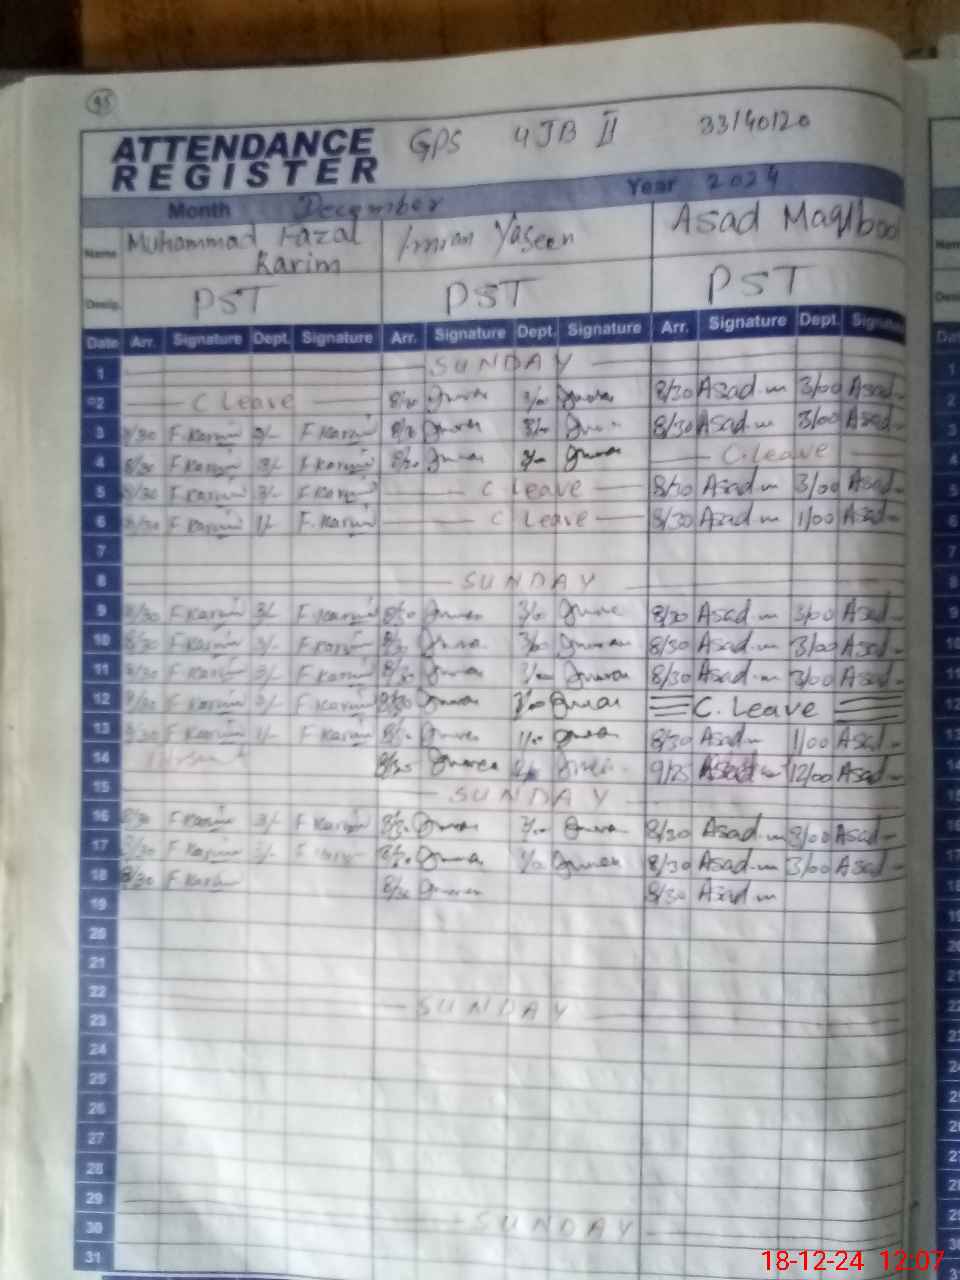 95
ATTENDANCE REGISTER GPS 4JB II 33140120
Month December Year 2024
Name Muhammad Fazal Karim Imran Yaseen Asad Maqlbool
Desig. PST PST PST
Date Arr. Signature Dept. Signature Arr. Signature Dept. Signature Arr. Signature Dept. Signature
1 SUNDAY
2 C Leave 8/30 3/00 8/30 Asad.m 3/00 Asad
3 8/30 F.Karim 3/- F.Karim 8/30 3/00 8/30 Asad.m 3/00 Asad
4 8/30 F Karim 3/- F Karim 8/30 3/- C.Leave
5 8/30 F Karim 3/- F Karim C Leave 8/30 Asad.m 3/00 Asad
6 8/30 F Karim 1/- F.Karim C Leave 8/30 Asad.m 1/00 Asad
7
8 SUNDAY
9 8/30 F Karim 3/- F Karim 8/30 3/00 8/30 Asad.m 3/00 Asad
10 8/30 F Karim 3/- F Karim 8/30 3/00 8/30 Asad.m 3/00 Asad
11 8/30 F Karim 3/- F Karim 8/30 3/00 8/30 Asad.m 3/00 Asad
12 8/30 F Karim 3/- F Karim 8/30 3/00 C. Leave
13 8/30 F Karim 1/- F Karim 8/30 1/00 8/30 Asad.m 1/00 Asad
14 8/30 9/25 Asad.m 12/00 Asad
15 SUNDAY
16 8/30 F Karim 3/- F Karim 8/30 3/00 8/30 Asad.m 3/00 Asad
17 8/30 F Karim 3/- F Karim 8/30 3/00 8/30 Asad.m 3/00 Asad
18 8/30 F Karim 8/30 8/30 Asad.m
19
20
21
22 SUNDAY
23
24
25
26
27
28
29 SUNDAY
30
31
18-12-24 12:07